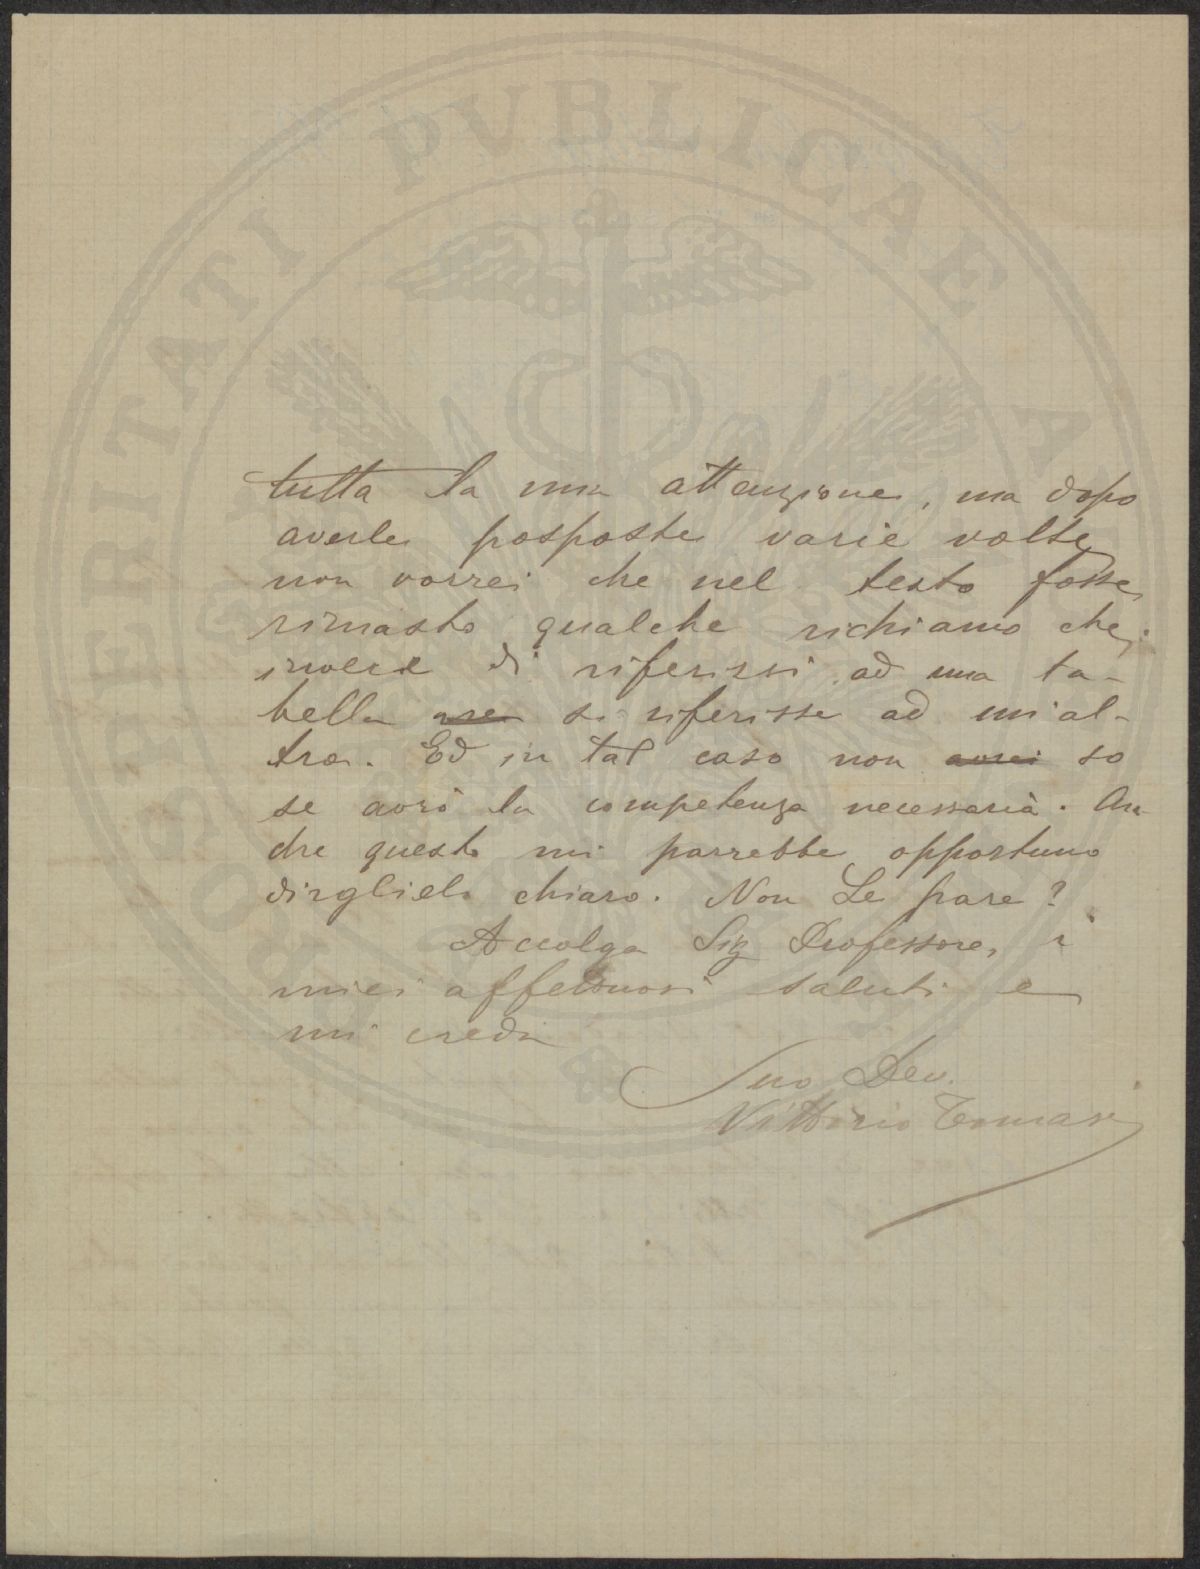 PROSPERITATI PVBLICAE AVGENDAE
tutta la mia attenzione, ma dopo
averle posposte varie volte
non vorrei che nel testo fosse
rimasto qualche richiamo che,
invece di riferirsi ad una ta-
bella si riferisse ad un'al-
tra. Ed in tal caso non avrei so
se avrò la competenza necessaria. An
che questo mi parrebbe opportuno
dirglielo chiaro. Non Le pare?
Accolga Sig Professore, i
miei affettuosi saluti e
mi creda
Suo Dev.
Vittorio Tomasi